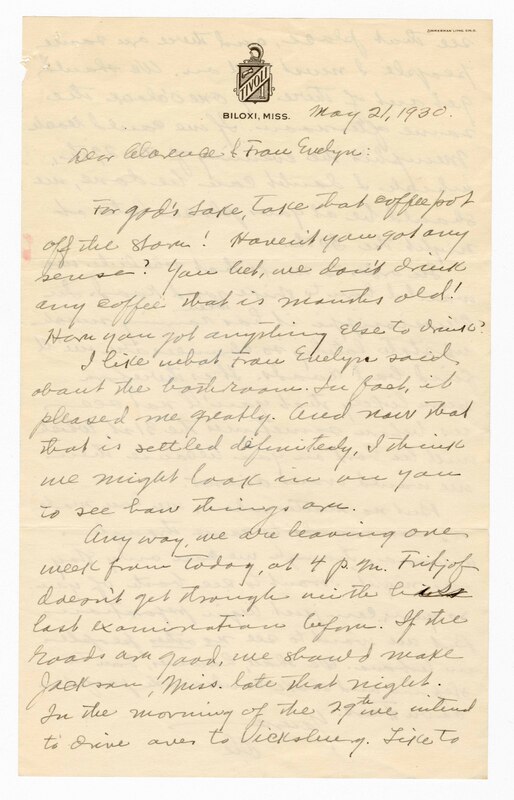 ZIMMERMAN LITHO. CIN. O.
TIVOLI
BILOXI, MISS.
May 21, 1930.
Dear Clarence & Frau Evelyn:
For god's sake, take that coffee pot
off the stove! Haven't you got any
sense? You bet, we don't drink
any coffee that is months old!
Have you got anything else to drink?
I like what Frau Evelyn said
about the bathroom. In fact, it
pleased me greatly. And now that
that is settled definitely, I think
we might look in on you
to see how things are.
Anyway, we are leaving one
week from today, at 4 p.m. Fritjof
doesn't get through with his
last examination before. If the
roads are good, we should make
Jackson, Miss. late that night.
In the morning of the 29th we intend
to drive over to Vicksburg. Like to